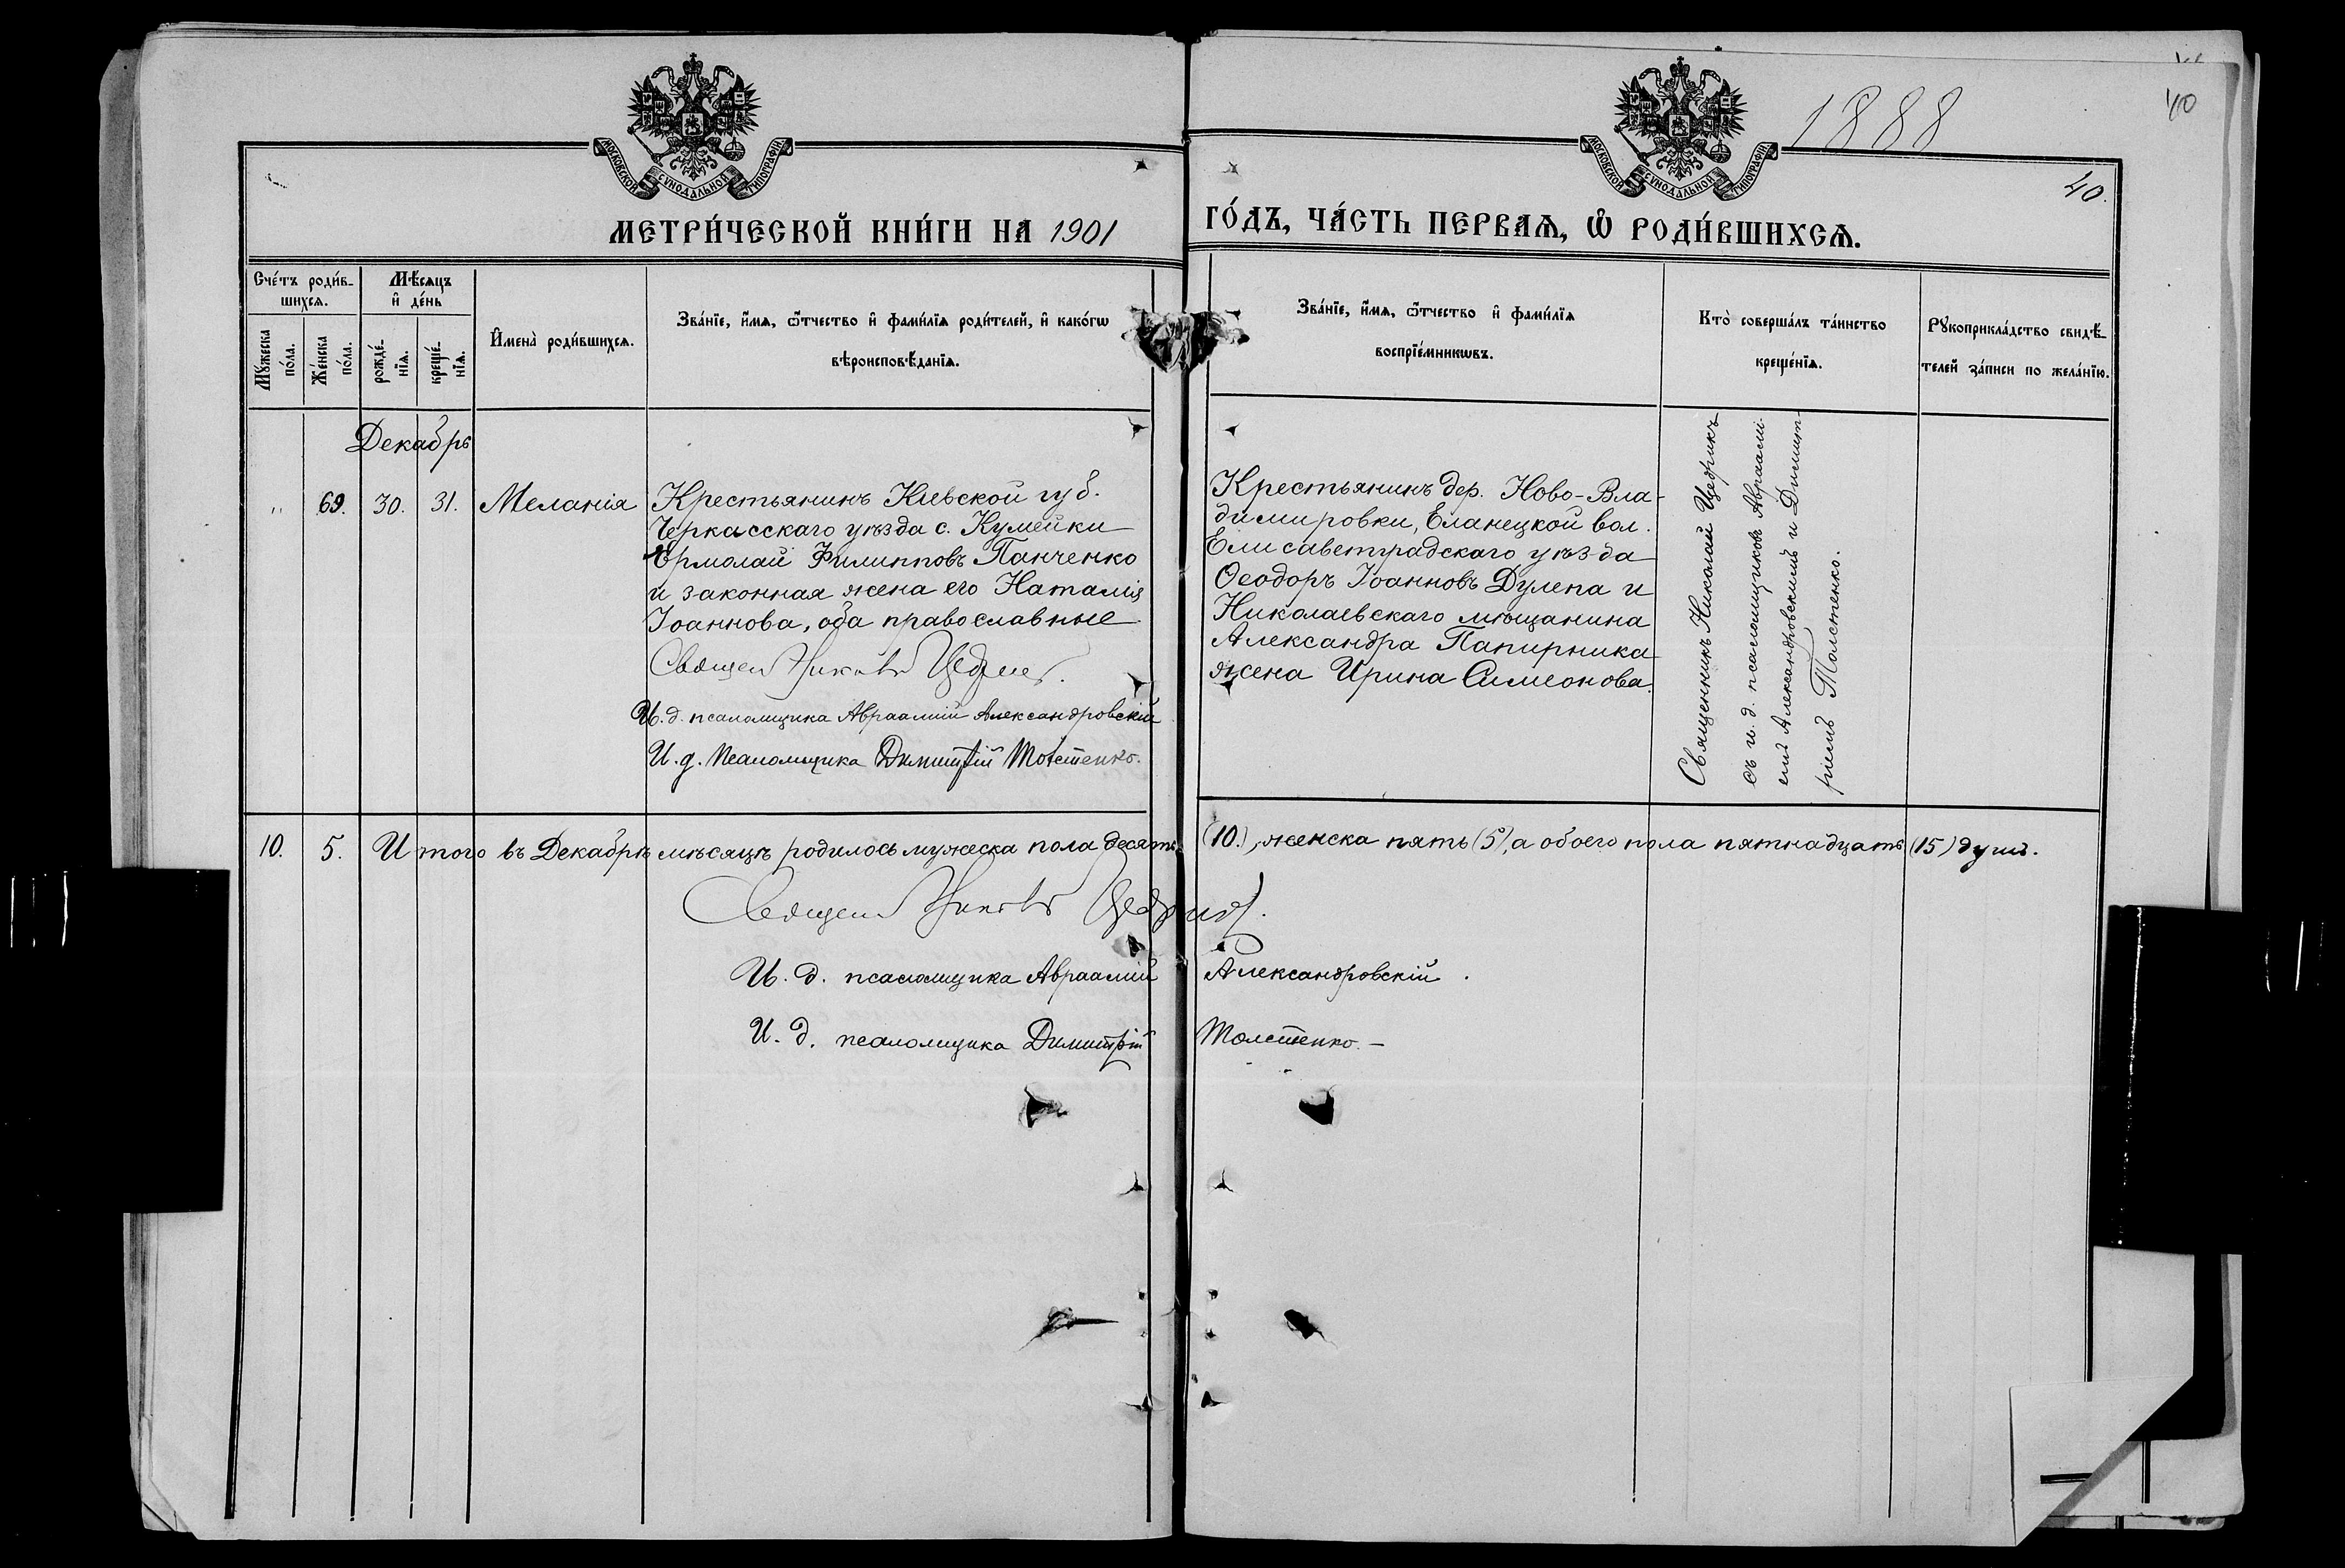 1888
40
40.
МОСКОВСКОЙ СѴНОДАЛЬНОЙ ТИПОГРАФІИ
МОСКОВСКОЙ СѴНОДАЛЬНОЙ ТИПОГРАФІИ
МЕТРИ́ЧЕСКОЙ КНИ́ГИ НА 1901 ГО́ДЪ, ЧА́СТЬ ПЕРВАѦ, Ѽ РОДИ́ВШИХСѦ.
Сче́тъ роди́в-
шихсѧ.
Мꙋ́жеска по́ла.
Же́нска по́ла.
Мѣ́сѧцъ
и҆ де́нь
рожде́-
нїѧ.
креще́-
нїѧ.
И҆мена̀ роди́вшихсѧ.
Зва́нїе, и҆́мѧ, ѻ҆́тчество и҆ фами́лїѧ роди́телей, и҆ како́гѡ
вѣроисповѣ́данїѧ.
Зва́нїе, и҆́мѧ, ѻ҆́тчество и҆ фами́лїѧ
воспрїе́мникѡвъ.
Кто̀ соверша́лъ та́инство
креще́нїѧ.
Рꙋкоприкла́дство свидѣ́-
телей за́писи по жела́нїю.
Декабрь
„ 69. 30. 31. Меланія
Крестьянинъ Кіевской губ.
Черкасскаго уѣзда с. Кумейки
Ермолай Филипповъ Панченко
и законная жена его Наталія
Іоаннова, оба православные
Священ Николай Щедрикъ.
И. д. псаломщика Авраамій Александровскій
И. д. псаломщика Димитрій Толстенко.
Крестьянинъ дер. Ново-Вла-
димировки, Еланецкой вол.
Елисаветградскаго уѣзда
Ѳеодоръ Іоанновъ Дулепа и
Николаевскаго мѣщанина
Александра Папирника
жена Ирина Симеонова.
Священникъ Николай Щедрикъ
съ и. д. псаломщиковъ Авраамі-
емъ Александровскимъ и Димит-
ріемъ Толстенко.
10. 5. Итого въ Декабрѣ мѣсяцѣ родилось мужеска пола десять (10), женска пять (5), а обоего пола пятнадцать (15) душъ.
Священ Николай Щедрикъ.
И. д. псаломщика Авраамій Александровскій.
И. д. псаломщика Димитрій Толстенко. –